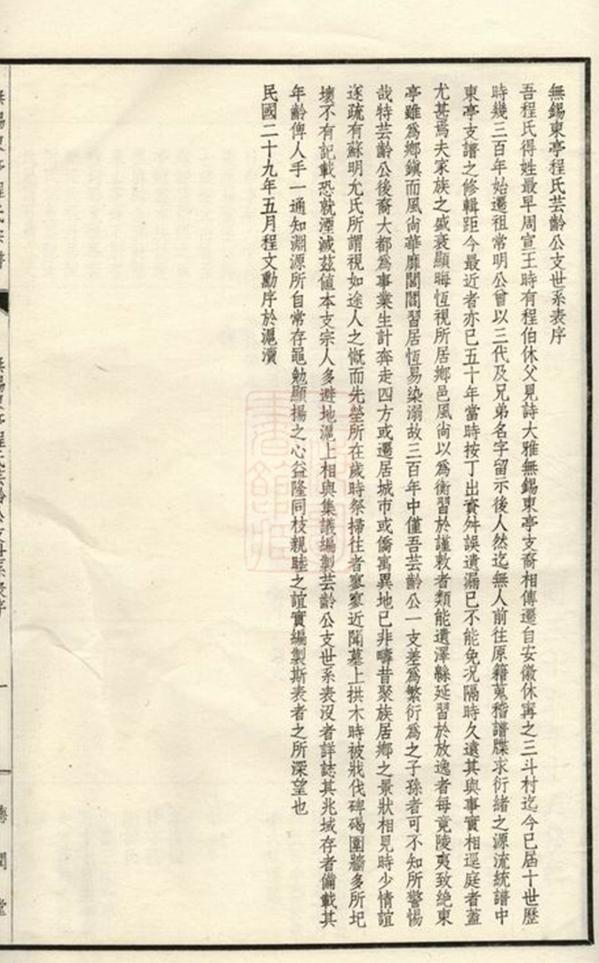 無錫東亭程氏芸齡公支世系表序
吾程氏得姓最早周宣王時有程伯休父見詩大雅無錫東亭支裔相傳遷自安徽休寧之三斗村迄今已屆十世歷
時幾三百年始遷祖常明公曾以三代及兄弟名字留示後人然迄無人前往原籍蒐稽譜牒求衍緒之源流統譜中
東亭支譜之修輯距今最近者亦已五十年當時按丁出賚舛誤遺漏已不能免況隔時久遠其與事實相逕庭者蓋
尤甚焉夫家族之盛衰顯晦恆視所居鄉邑風尚以為衡習於謹敕者類能遺澤緜延習於放逸者每竟陵夷致绝東
亭雖為鄉鎮而風尚華靡闤闠習居恆易染溺故三百年中僅吾芸齡公一支差為繁衍為之子孫者可不知所警惕
哉特芸齡公後裔大都為事業生計奔走四方或遷居城市或僑寓異地已非疇昔聚族居鄉之景狀相見時少情誼
逐疏有蘇明允氏所謂視如途人之慨而先塋所在歲時祭掃往者寥寥近聞墓上拱木時被戕伐碑碣圍牆多所圮
壞不有記載恐就湮滅茲值本支宗人多避地滬上相與集議編製芸齡公支世系表沒者詳誌其兆域存者備載其
年齡俾人手一通知淵源所自常存黽勉顯揚之心益隆同枝親睦之誼實編製斯表者之所深望也
民國二十九年五月程文勳序於滬瀆
無錫東亭程氏宗譜
無錫東亭程氏芸齡公支世系表序
一